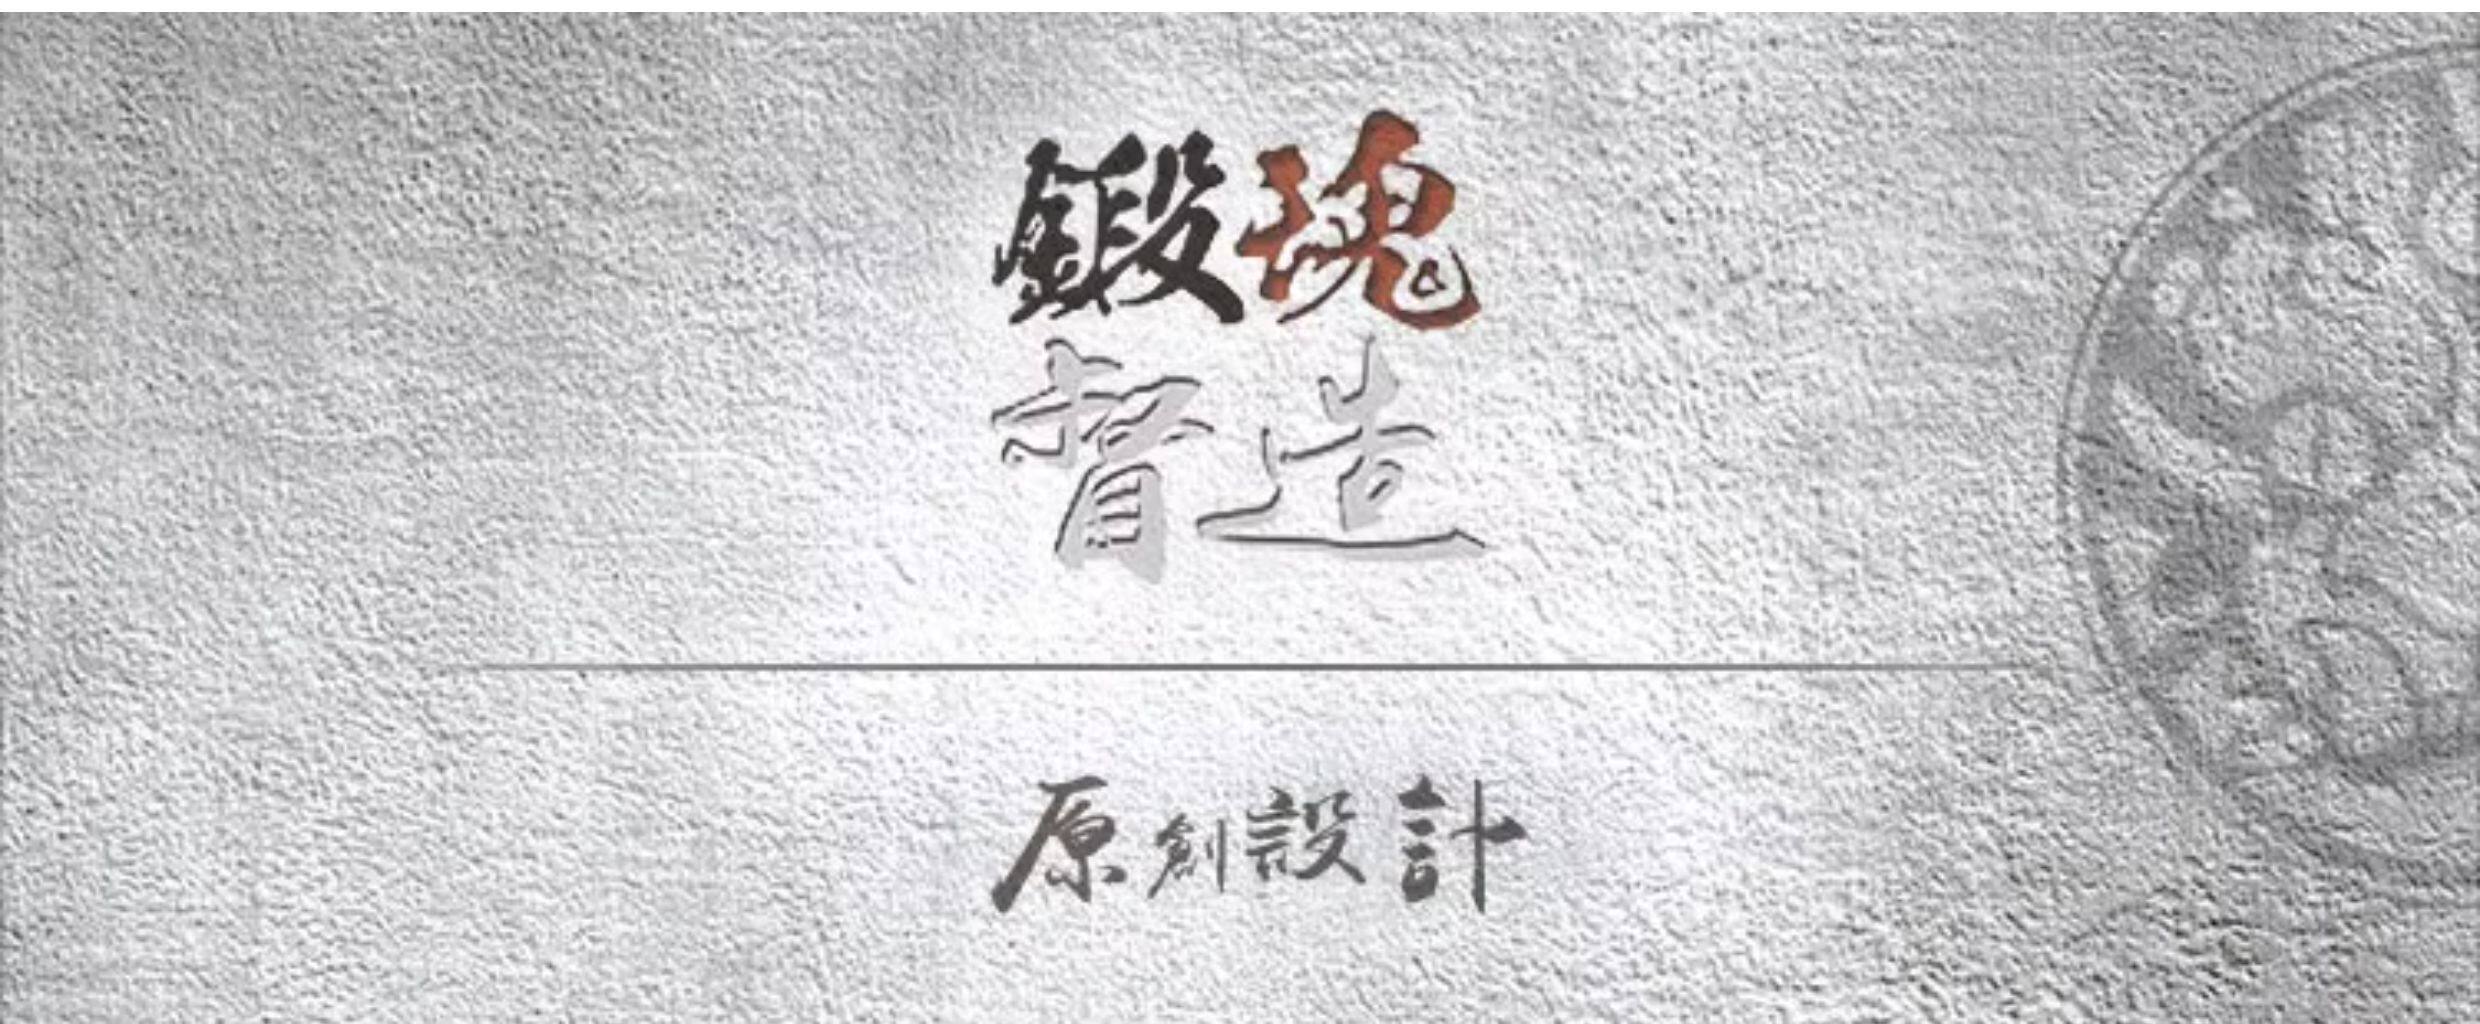 鍛魂
督造
原創設計